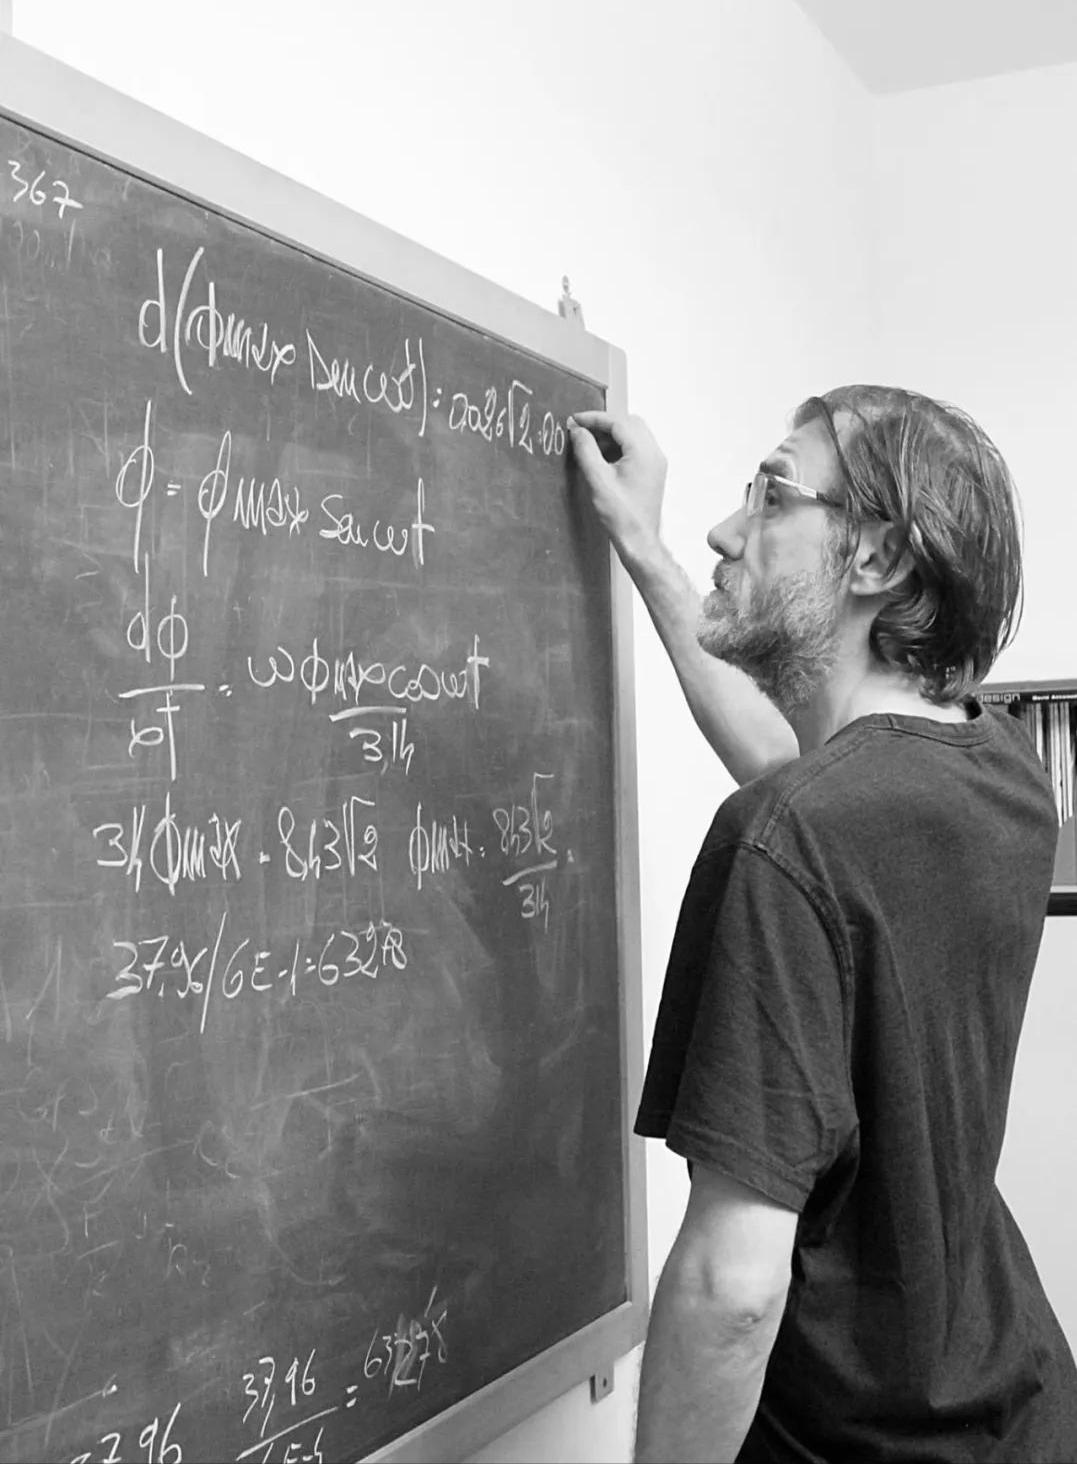 367
d(ϕmax senωt) = 0,026√2·00
ϕ = ϕmax senωt
dϕ/dt = ωϕmax cosωt
314
314ϕmax = 8,43√2 ϕmax = 8,43√2/314 =
37,96/6E-4=63278
37,96/6E-4 = 63278
37,96
design